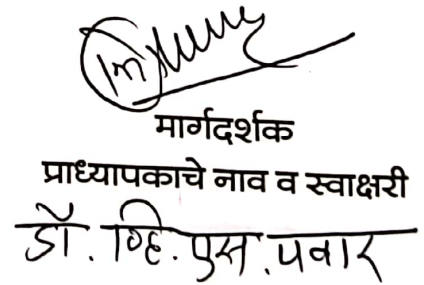 मार्गदर्शक
प्राध्यापकाचे नाव व स्वाक्षरी
डॉ. व्हि. एस. पवार